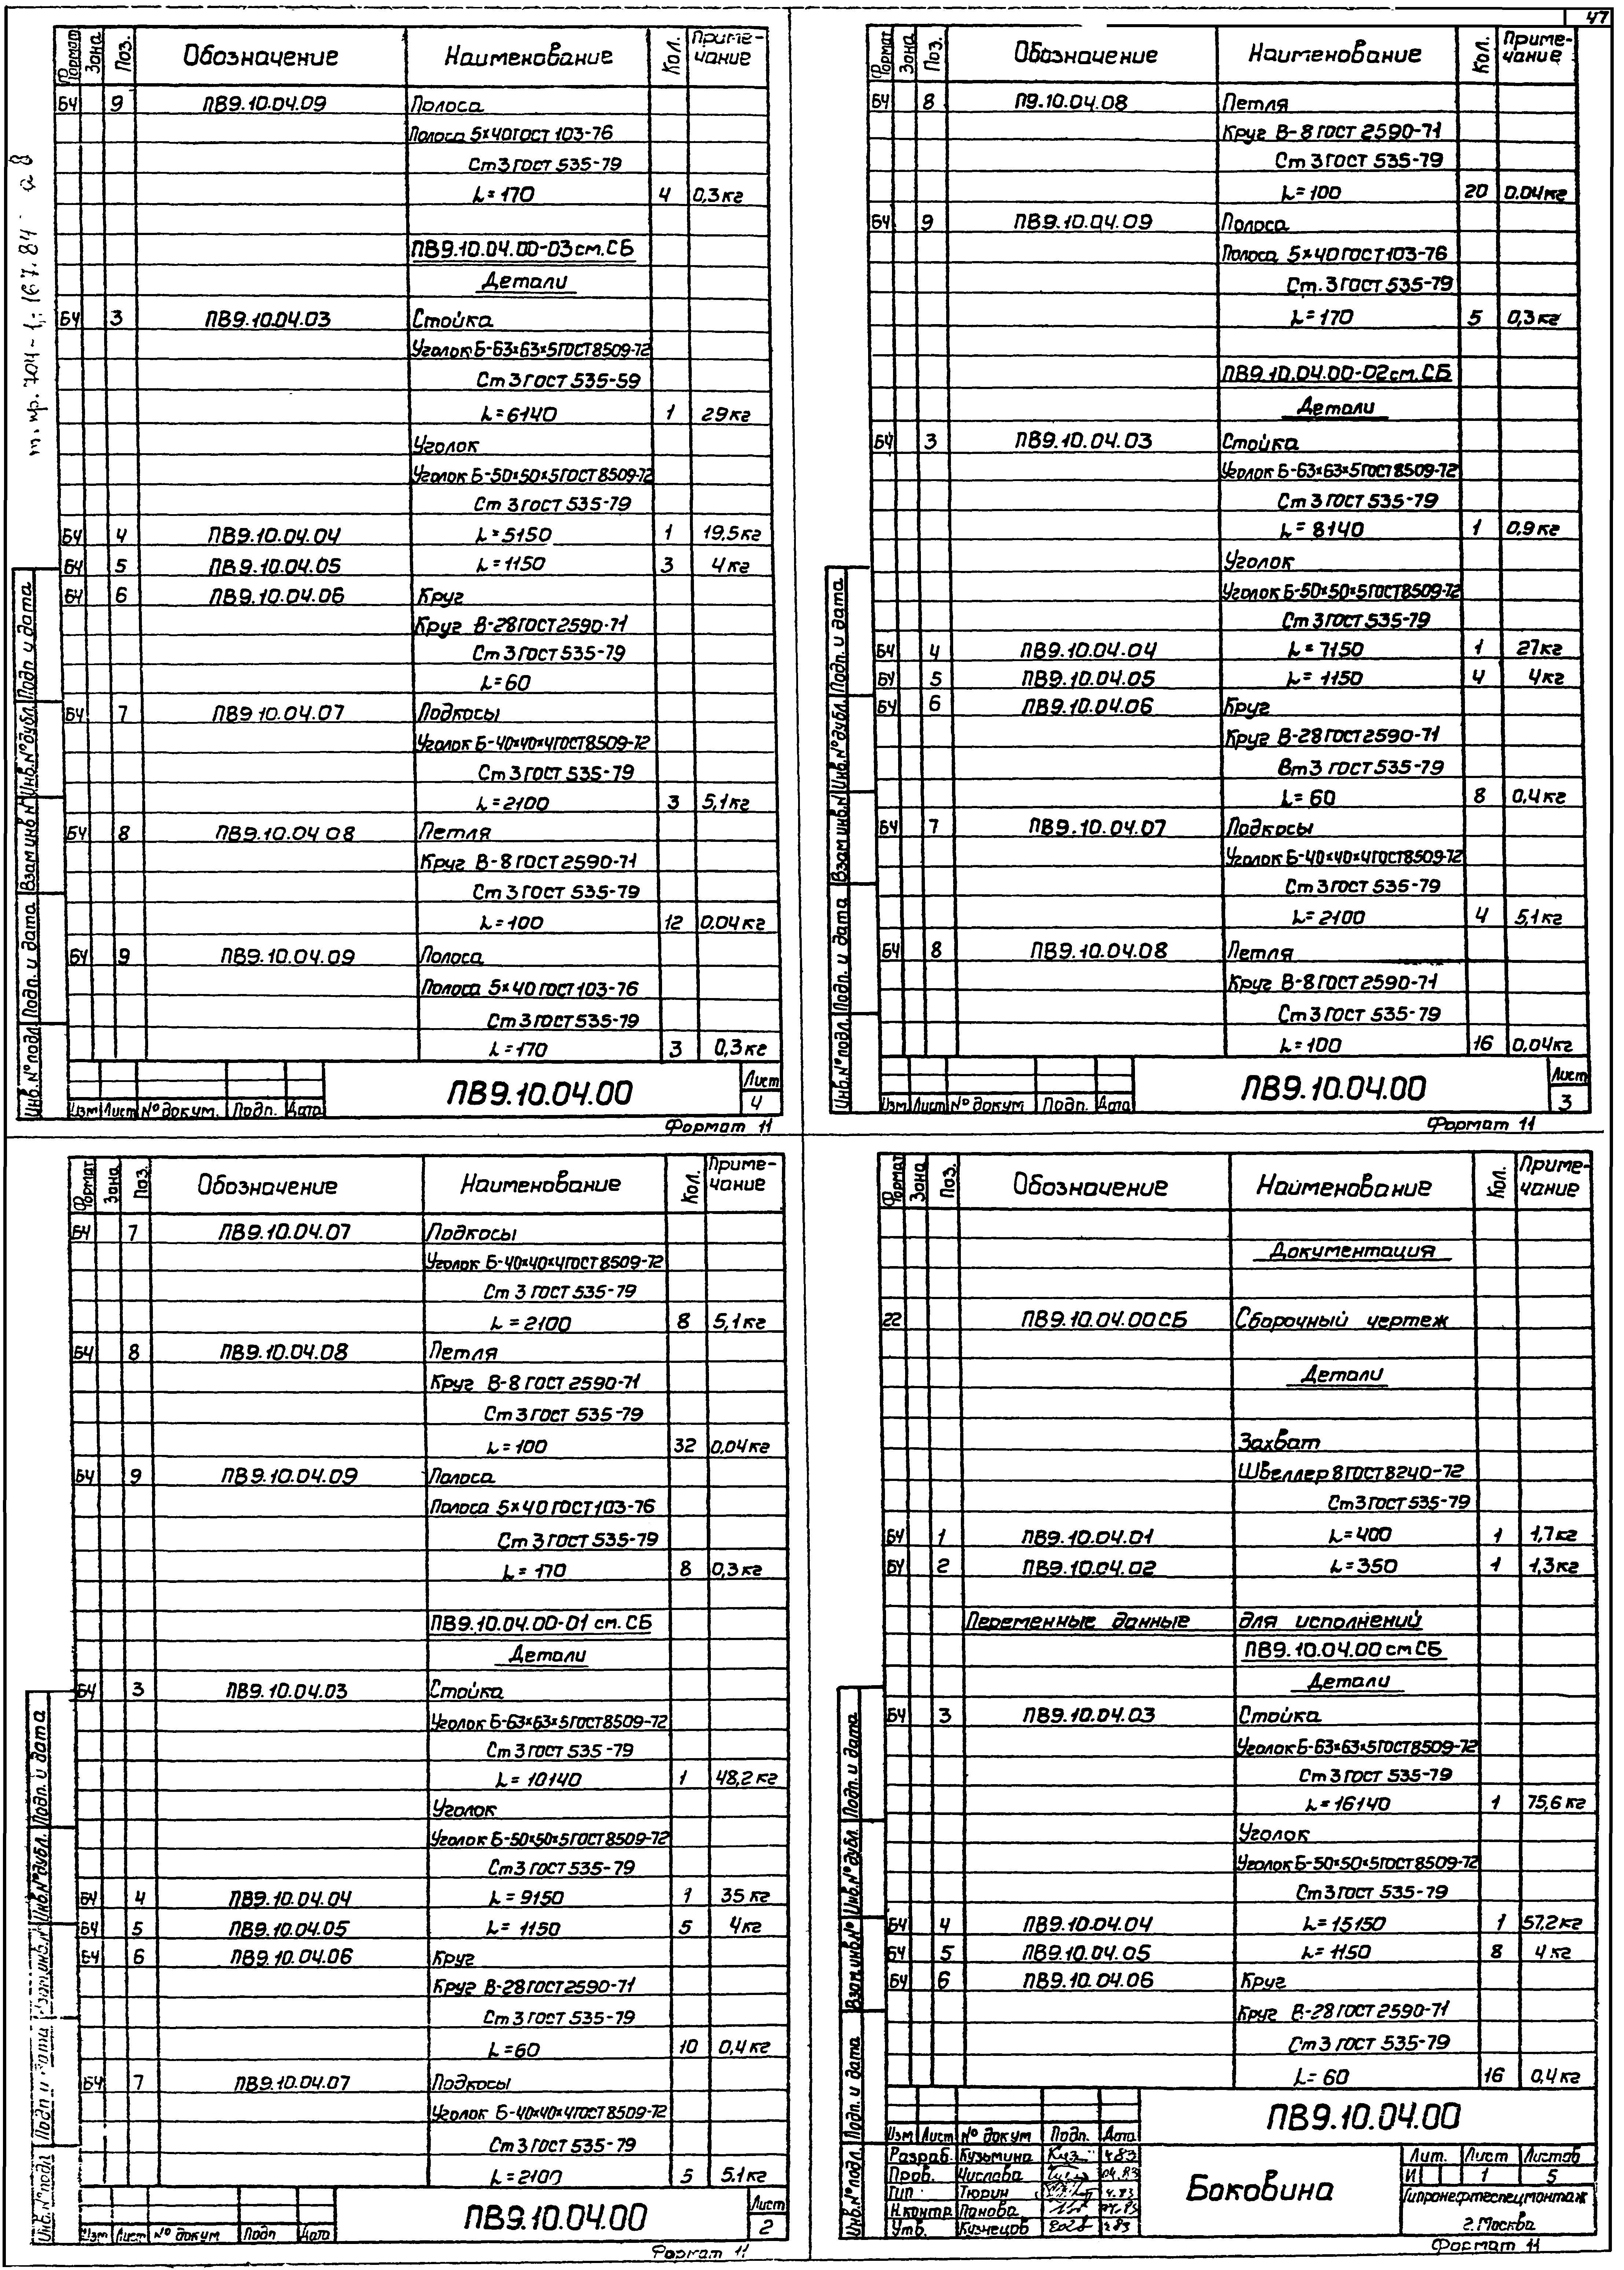 47
т.пр. 704-1-167.84 а 8
Формат Зона Поз. Обозначение Наименование Кол. Примечание
БЧ 9 ПВ9.10.04.09 Полоса
Полоса 5×40 ГОСТ 103-76
Ст3 ГОСТ 535-79
L=170 4 0,3кг
ПВ9.10.04.00-03 см.СБ
Детали
БЧ 3 ПВ9.10.04.03 Стойка
Уголок Б-63×63×5 ГОСТ 8509-72
Ст3 ГОСТ 535-59
L=6140 1 29кг
Уголок
Уголок Б-50×50×5 ГОСТ 8509-72
Ст3 ГОСТ 535-79
БЧ 4 ПВ9.10.04.04 L=5150 1 19,5кг
БЧ 5 ПВ9.10.04.05 L=1150 3 4кг
БЧ 6 ПВ9.10.04.06 Круг
Круг В-28 ГОСТ 2590-71
Ст3 ГОСТ 535-79
L=60
БЧ 7 ПВ9 10.04.07 Подкосы
Уголок Б-40×40×4 ГОСТ 8509-72
Ст3 ГОСТ 535-79
L=2100 3 5,1кг
БЧ 8 ПВ9.10.04 08 Петля
Круг В-8 ГОСТ 2590-71
Ст3 ГОСТ 535-79
L=100 12 0.04кг
БЧ 9 ПВ9.10.04.09 Полоса
Полоса 5×40 ГОСТ 103-76
Ст3 ГОСТ 535-79
L=170 3 0,3кг
Инв.№ подл. Подп. и дата Взам инв № Инв.№ дубл. Подп и дата
Изм Лист № докум. Подп. Дата
ПВ9.10.04.00
Лист 4
Формат 11
Формат Зона Поз. Обозначение Наименование Кол. Примечание
БЧ 8 П9.10.04.08 Петля
Круг В-8 ГОСТ 2590-71
Ст3 ГОСТ 535-79
L=100 20 0.04кг
БЧ 9 ПВ9.10.04.09 Полоса
Полоса 5×40 ГОСТ 103-76
Ст.3 ГОСТ 535-79
L=170 5 0,3кг
ПВ9.10.04.00-02 см.СБ
Детали
БЧ 3 ПВ9.10.04.03 Стойка
Уголок Б-63×63×5 ГОСТ 8509-72
Ст3 ГОСТ 535-79
L=8140 1 0,9кг
Уголок
Уголок Б-50×50×5 ГОСТ 8509-72
Ст3 ГОСТ 535-79
БЧ 4 ПВ9.10.04.04 L=7150 1 27кг
БЧ 5 ПВ9.10.04.05 L=1150 4 4кг
БЧ 6 ПВ9.10.04.06 Круг
Круг В-28 ГОСТ 2590-71
Вт3 ГОСТ 535-79
L=60 8 0,4кг
БЧ 7 ПВ9.10.04.07 Подкосы
Уголок Б-40×40×4 ГОСТ 8509-72
Ст3 ГОСТ 535-79
L=2100 4 5,1кг
БЧ 8 ПВ9.10.04.08 Петля
Круг В-8 ГОСТ 2590-71
Ст3 ГОСТ 535-79
L=100 16 0,04кг
Инв.№ подл. Подп. и дата Взам инв.№ Инв.№ дубл. Подп. и дата
Изм Лист № докум Подп. Дата
ПВ9.10.04.00
Лист 3
Формат 11
Формат Зона Поз. Обозначение Наименование Кол. Примечание
БЧ 7 ПВ9.10.04.07 Подкосы
Уголок Б-40×40×4 ГОСТ 8509-72
Ст3 ГОСТ 535-79
L=2100 8 5,1кг
БЧ 8 ПВ9.10.04.08 Петля
Круг В-8 ГОСТ 2590-71
Ст3 ГОСТ 535-79
L=100 32 0,04кг
БЧ 9 ПВ9.10.04.09 Полоса
Полоса 5×40 ГОСТ 103-76
Ст3 ГОСТ 535-79
L=170 8 0,3кг
ПВ9.10.04.00-01 см.СБ
Детали
БЧ 3 ПВ9.10.04.03 Стойка
Уголок Б-63×63×5 ГОСТ 8509-72
Ст3 ГОСТ 535-79
L=10140 1 48,2кг
Уголок
Уголок Б-50×50×5 ГОСТ 8509-72
Ст3 ГОСТ 535-79
БЧ 4 ПВ9.10.04.04 L=9150 1 35кг
БЧ 5 ПВ9.10.04.05 L=1150 5 4кг
БЧ 6 ПВ9.10.04.06 Круг
Круг В-28 ГОСТ 2590-71
Ст3 ГОСТ 535-79
L=60 10 0,4кг
БЧ 7 ПВ9.10.04.07 Подкосы
Уголок Б-40×40×4 ГОСТ 8509-72
Ст3 ГОСТ 535-79
L=2100 5 5.1кг
Инв.№ подл Подп и дата Взам.инв.№ Инв.№ дубл. Подп. и дата
Изм Лист № докум Подп Дата
ПВ9.10.04.00
Лист 2
Формат 11
Формат Зона Поз. Обозначение Наименование Кол. Примечание
Документация
22 ПВ9.10.04.00 СБ Сборочный чертеж
Детали
Захват
Швеллер 8 ГОСТ 8240-72
Ст3 ГОСТ 535-79
БЧ 1 ПВ9.10.04.01 L=400 1 1,7кг
БЧ 2 ПВ9.10.04.02 L=350 1 1,3кг
Переменные данные для исполнений
ПВ9.10.04.00 см СБ
Детали
БЧ 3 ПВ9.10.04.03 Стойка
Уголок Б-63×63×5 ГОСТ 8509-72
Ст3 ГОСТ 535-79
L=16140 1 75,6кг
Уголок
Уголок Б-50×50×5 ГОСТ 8509-72
Ст3 ГОСТ 535-79
БЧ 4 ПВ9.10.04.04 L=15150 1 57,2кг
БЧ 5 ПВ9.10.04.05 L=1150 8 4кг
БЧ 6 ПВ9.10.04.06 Круг
Круг В-28 ГОСТ 2590-71
Ст3 ГОСТ 535-79
L=60 16 0,4кг
Инв.№ подл. Подп. и дата Взам инв.№ Инв.№ дубл. Подп и дата
ПВ9.10.04.00
Изм Лист № докум Подп. Дата
Разраб. Кузьмина 4.83
Пров. Числава 04.83
ГИП Тюрин 4.83
Н.контр Панова
Утв. Кузнецов
Боковина
Лит. Лист Листов
И 1 5
Гипронефтеспецмонтаж
г.Москва
Формат 11